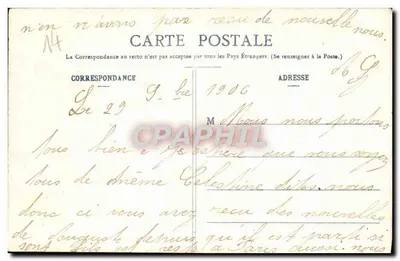 n'en n'avons pas recu de nouvelle nous.
14
CARTE POSTALE
La Correspondance au recto n'est pas acceptée par tous les Pays Étrangers. (Se renseigner à la Poste.)
CORRESPONDANCE
ADRESSE
Le 29 9bre 1906
M Nous nous portons
tous bien Jespère que vous soyez
tous de même Celestine dites nous
donc ci vous avez recu des nouvelles
de depuis qu'il est parti si
sont fils est resté a Paris aussi nous
PRCARTE